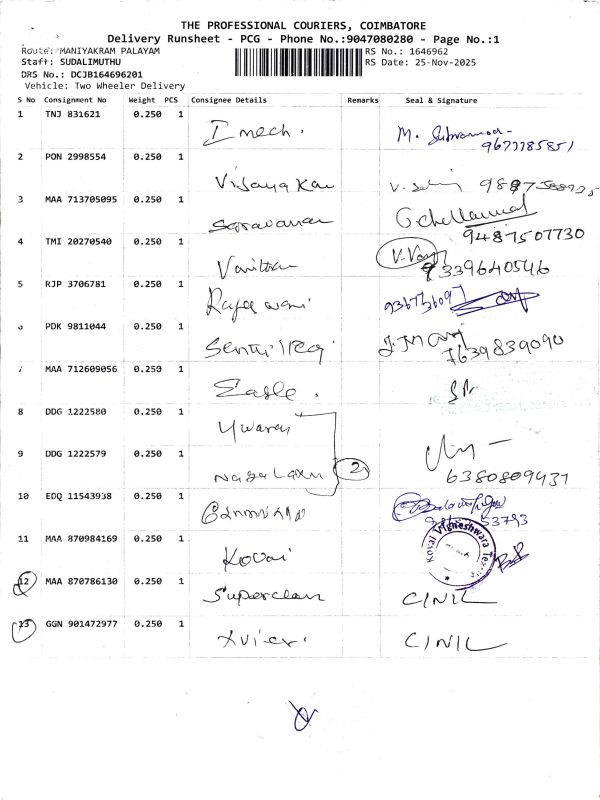 THE PROFESSIONAL COURIERS, COIMBATORE
Delivery Runsheet - PCG - Phone No.:9047080280 - Page No.:1
Route: MANIYAKRAM PALAYAM RS No.: 1646962
Staff: SUDALIMUTHU RS Date: 25-Nov-2025
DRS No.: DCJB164696201
Vehicle: Two Wheeler Delivery
S No Consignment No Weight PCS Consignee Details Remarks Seal & Signature
1 TNJ 831621 0.250 1 I mech. M.
2 PON 2998554 0.250 1 Vijaya Kau V.
3 MAA 713705095 0.250 1 Saravanan G chellammal
9487507730
4 TMI 20270540 0.250 1 Vanitha
9339640546
5 RJP 3706781 0.250 1
6 PDK 9811044 0.250 1
7639839090
7 MAA 712609056 0.250 1 Eagle.
8 DDG 1222580 0.250 1
9 DDG 1222579 0.250 1 2
6380809431
10 EDQ 11543938 0.250 1
11 MAA 870984169 0.250 1 Kovai Kovai Vigneshwara
12 MAA 870786130 0.250 1 Superclean CINIL
13 GGN 901472977 0.250 1 CINIL